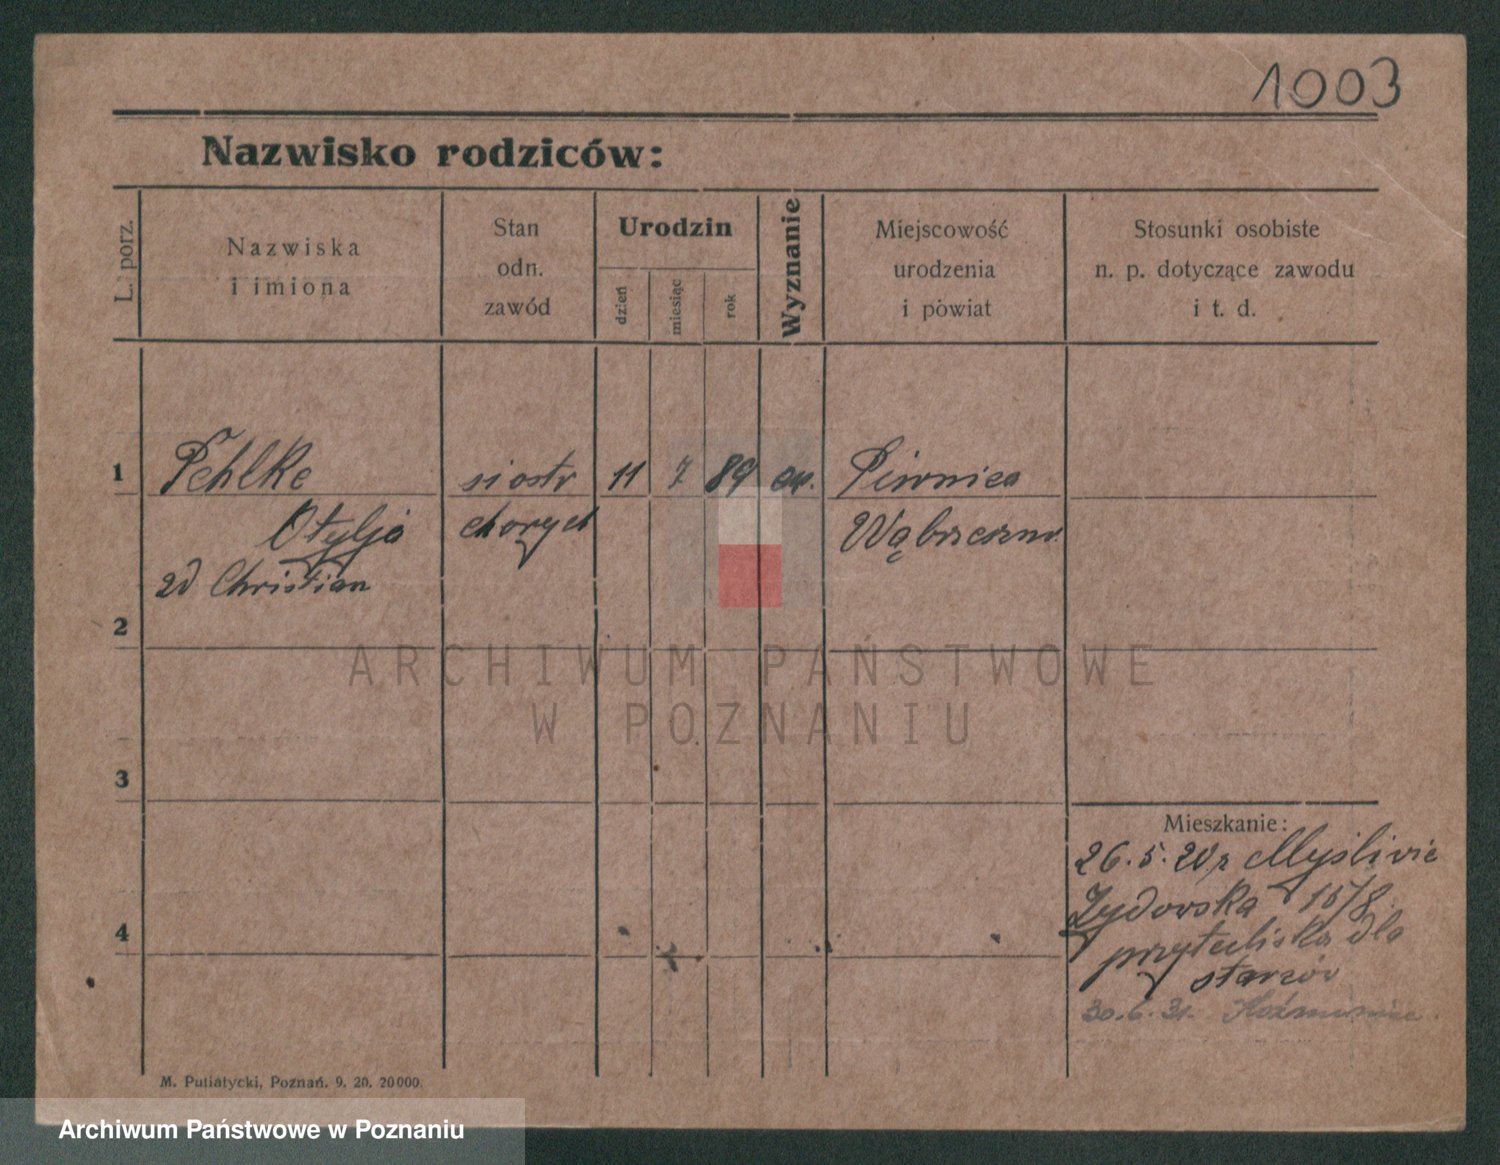 1003
Nazwisko rodziców:
L. porz.
Nazwiska
i imiona
Stan
odn.
zawód
Urodzin
dzień
miesiąc
rok
Wyznanie
Miejscowość
urodzenia
i powiat
Stosunki osobiste
n. p. dotyczące zawodu
i t. d.
1 Pehlke siostr 11 7 89 ew. Piwnica
Otylja chorych
zd Christian
2
ARCHIWUM PAŃSTWOWE
W POZNANIU
3
Mieszkanie:
26.5.20 z
Żydowska 15/8
4
przytuliska dla
starców
30.6.31.
M. Putiatycki, Poznań. 9. 20. 20000.
Archiwum Państwowe w Poznaniu